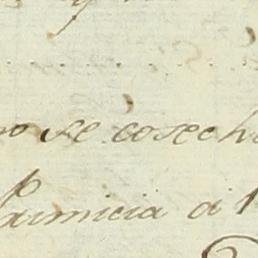 no se cosech
Primicia a 1